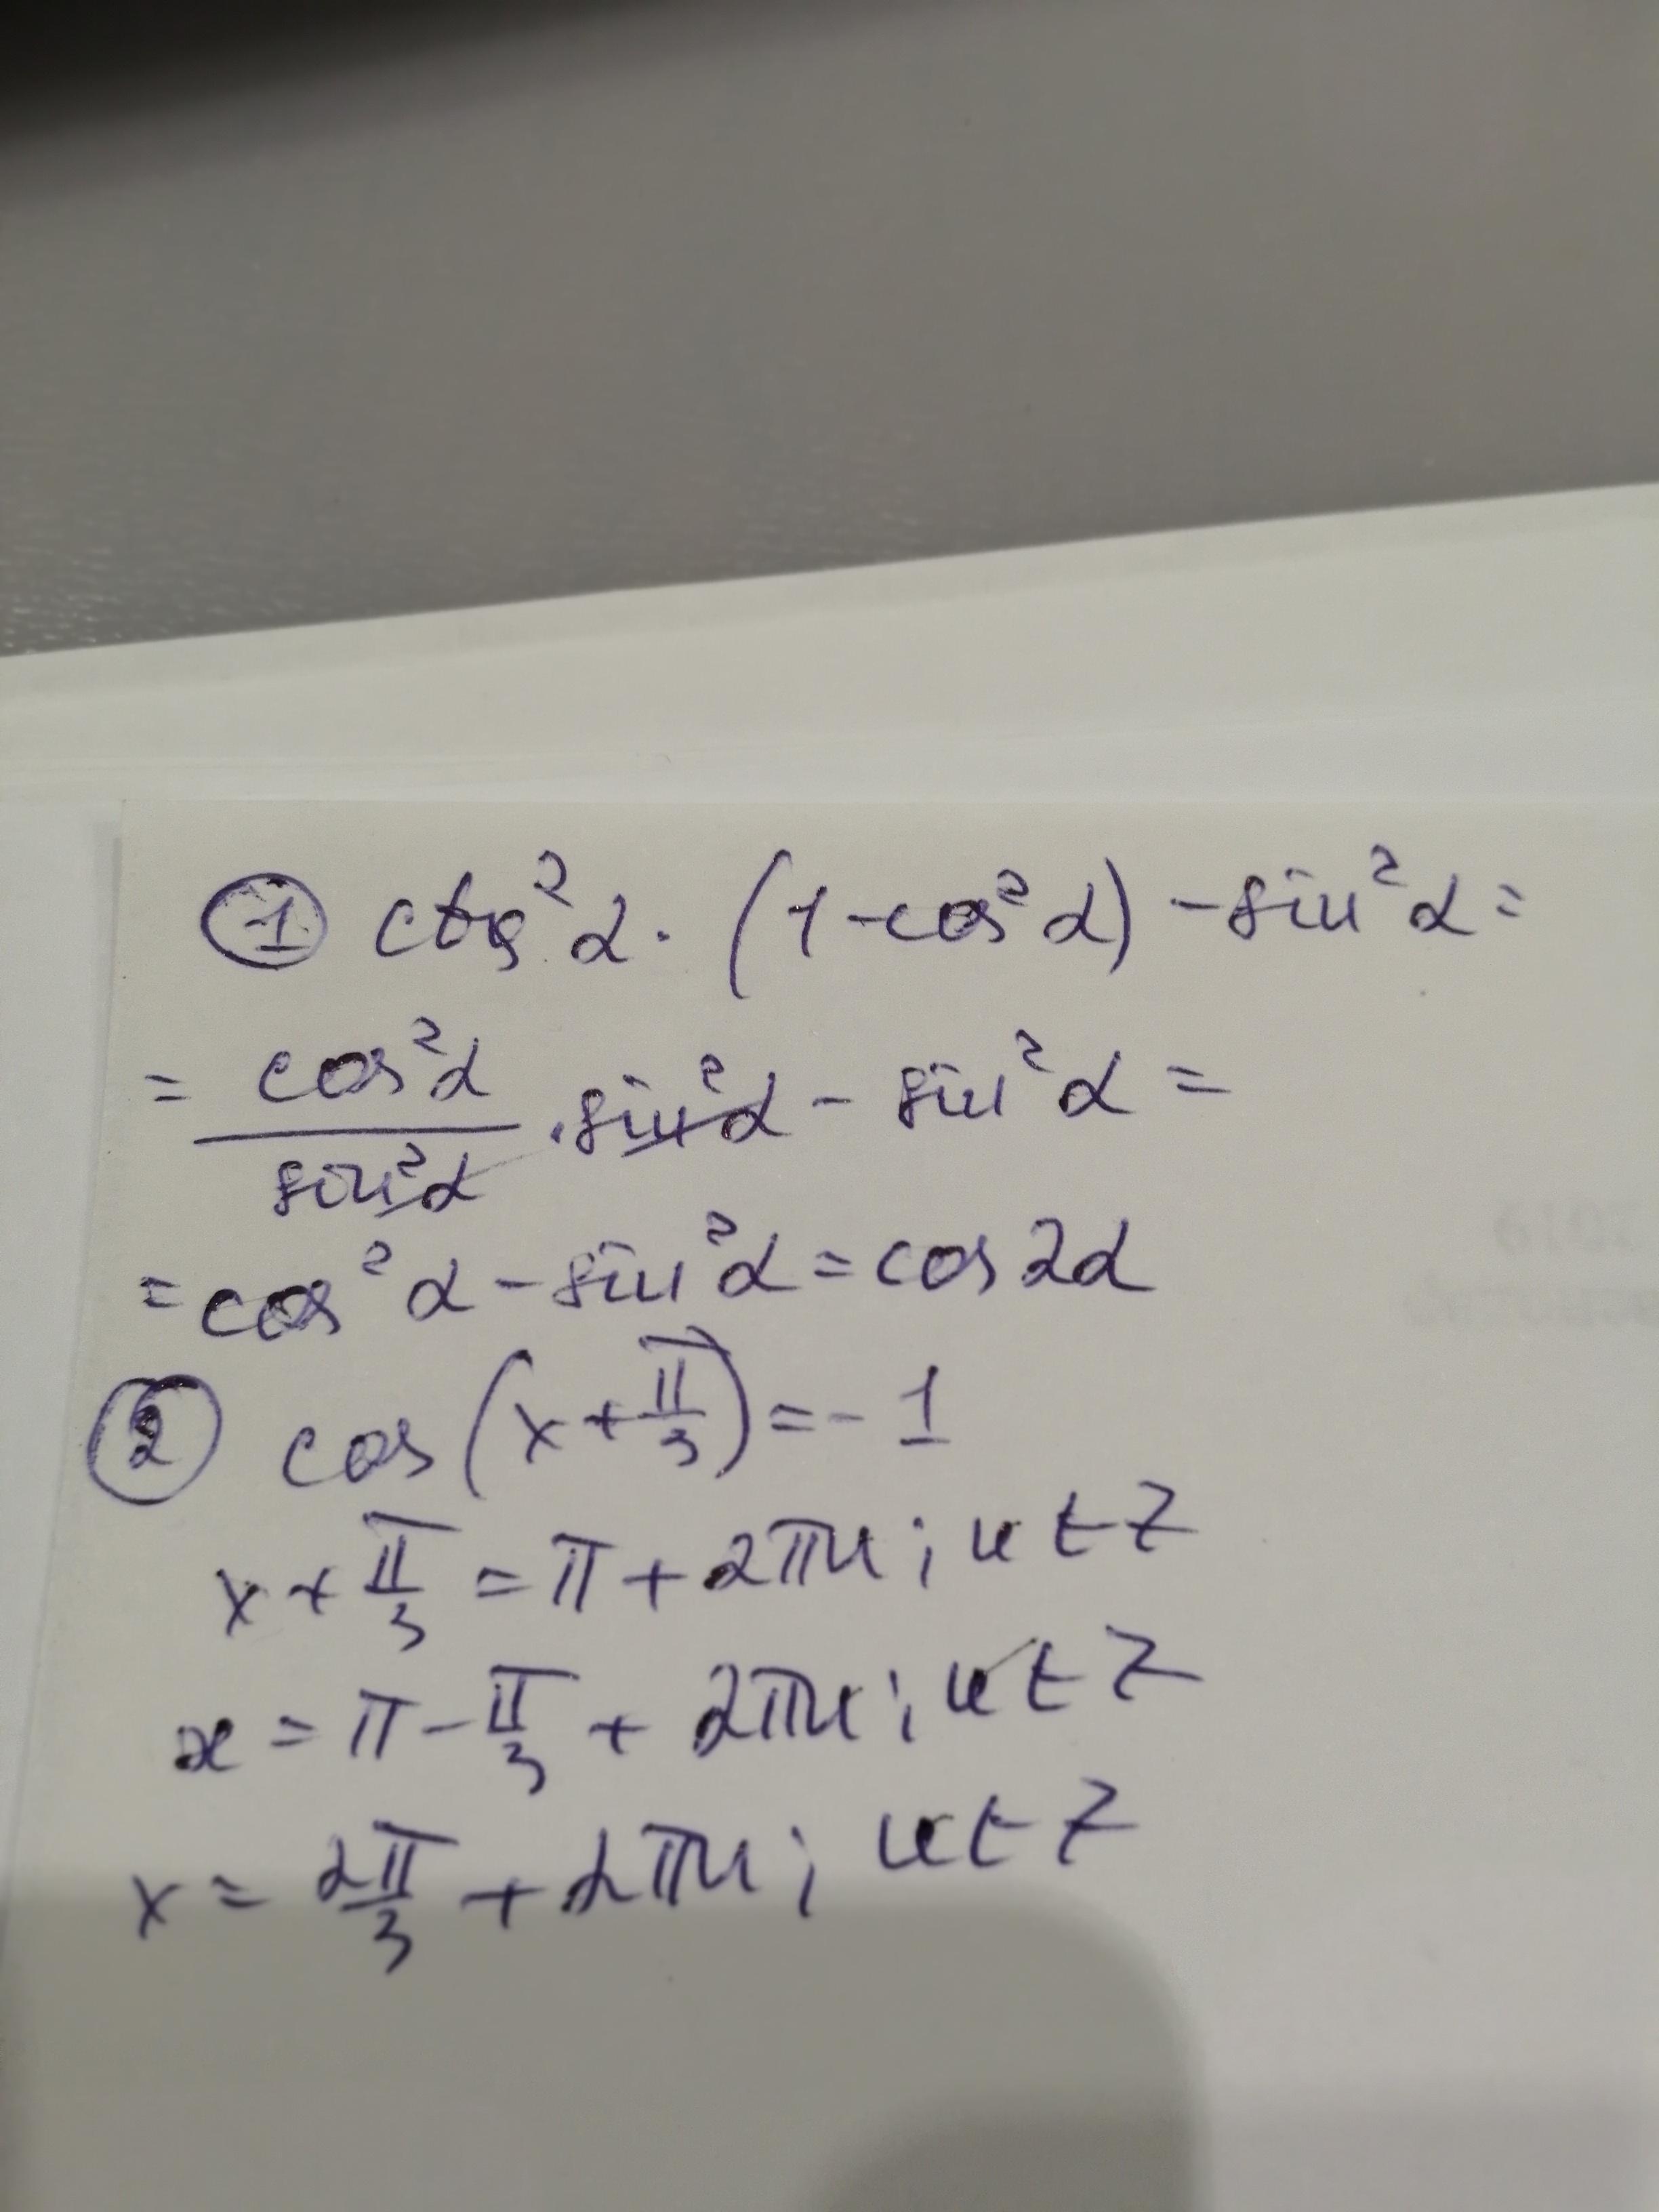 ① ctg²α · (1-cos²α) - sin²α =
= cos²α/sin²α · sin²α - sin²α =
= cos²α - sin²α = cos2α
② cos(x + π/3) = -1
x + π/3 = π + 2πn; n ∈ Z
x = π - π/3 + 2πn; n ∈ Z
x = 2π/3 + 2πn; n ∈ Z